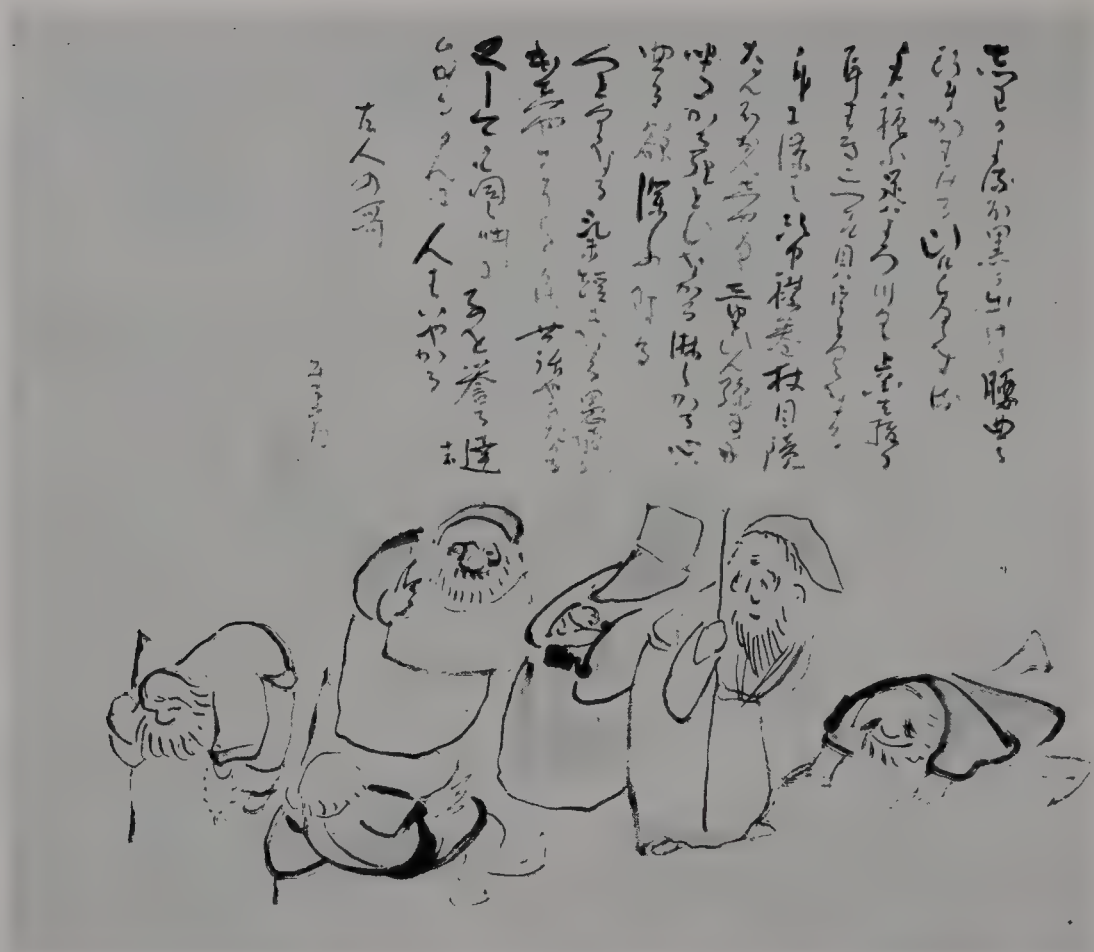 志わかよるほ黒か出ける腰曲る
頭まかはける ひけ白くなる
手ハ振ふ足ハよろつく歯は抜る
耳はきこへす目ハうとくなる
身に添は頭巾襟巻杖目鏡
たんほおんしやくしゆひん孫の手
聞たかる死ともなかる淋しかる心
曲る欲深ふなる
くとくなる気短になる愚ちになる
出しやはりたかる世話やきたかる
又しても同し咄に子を誉る達
者
自まんに人はいやかる
古人の哥